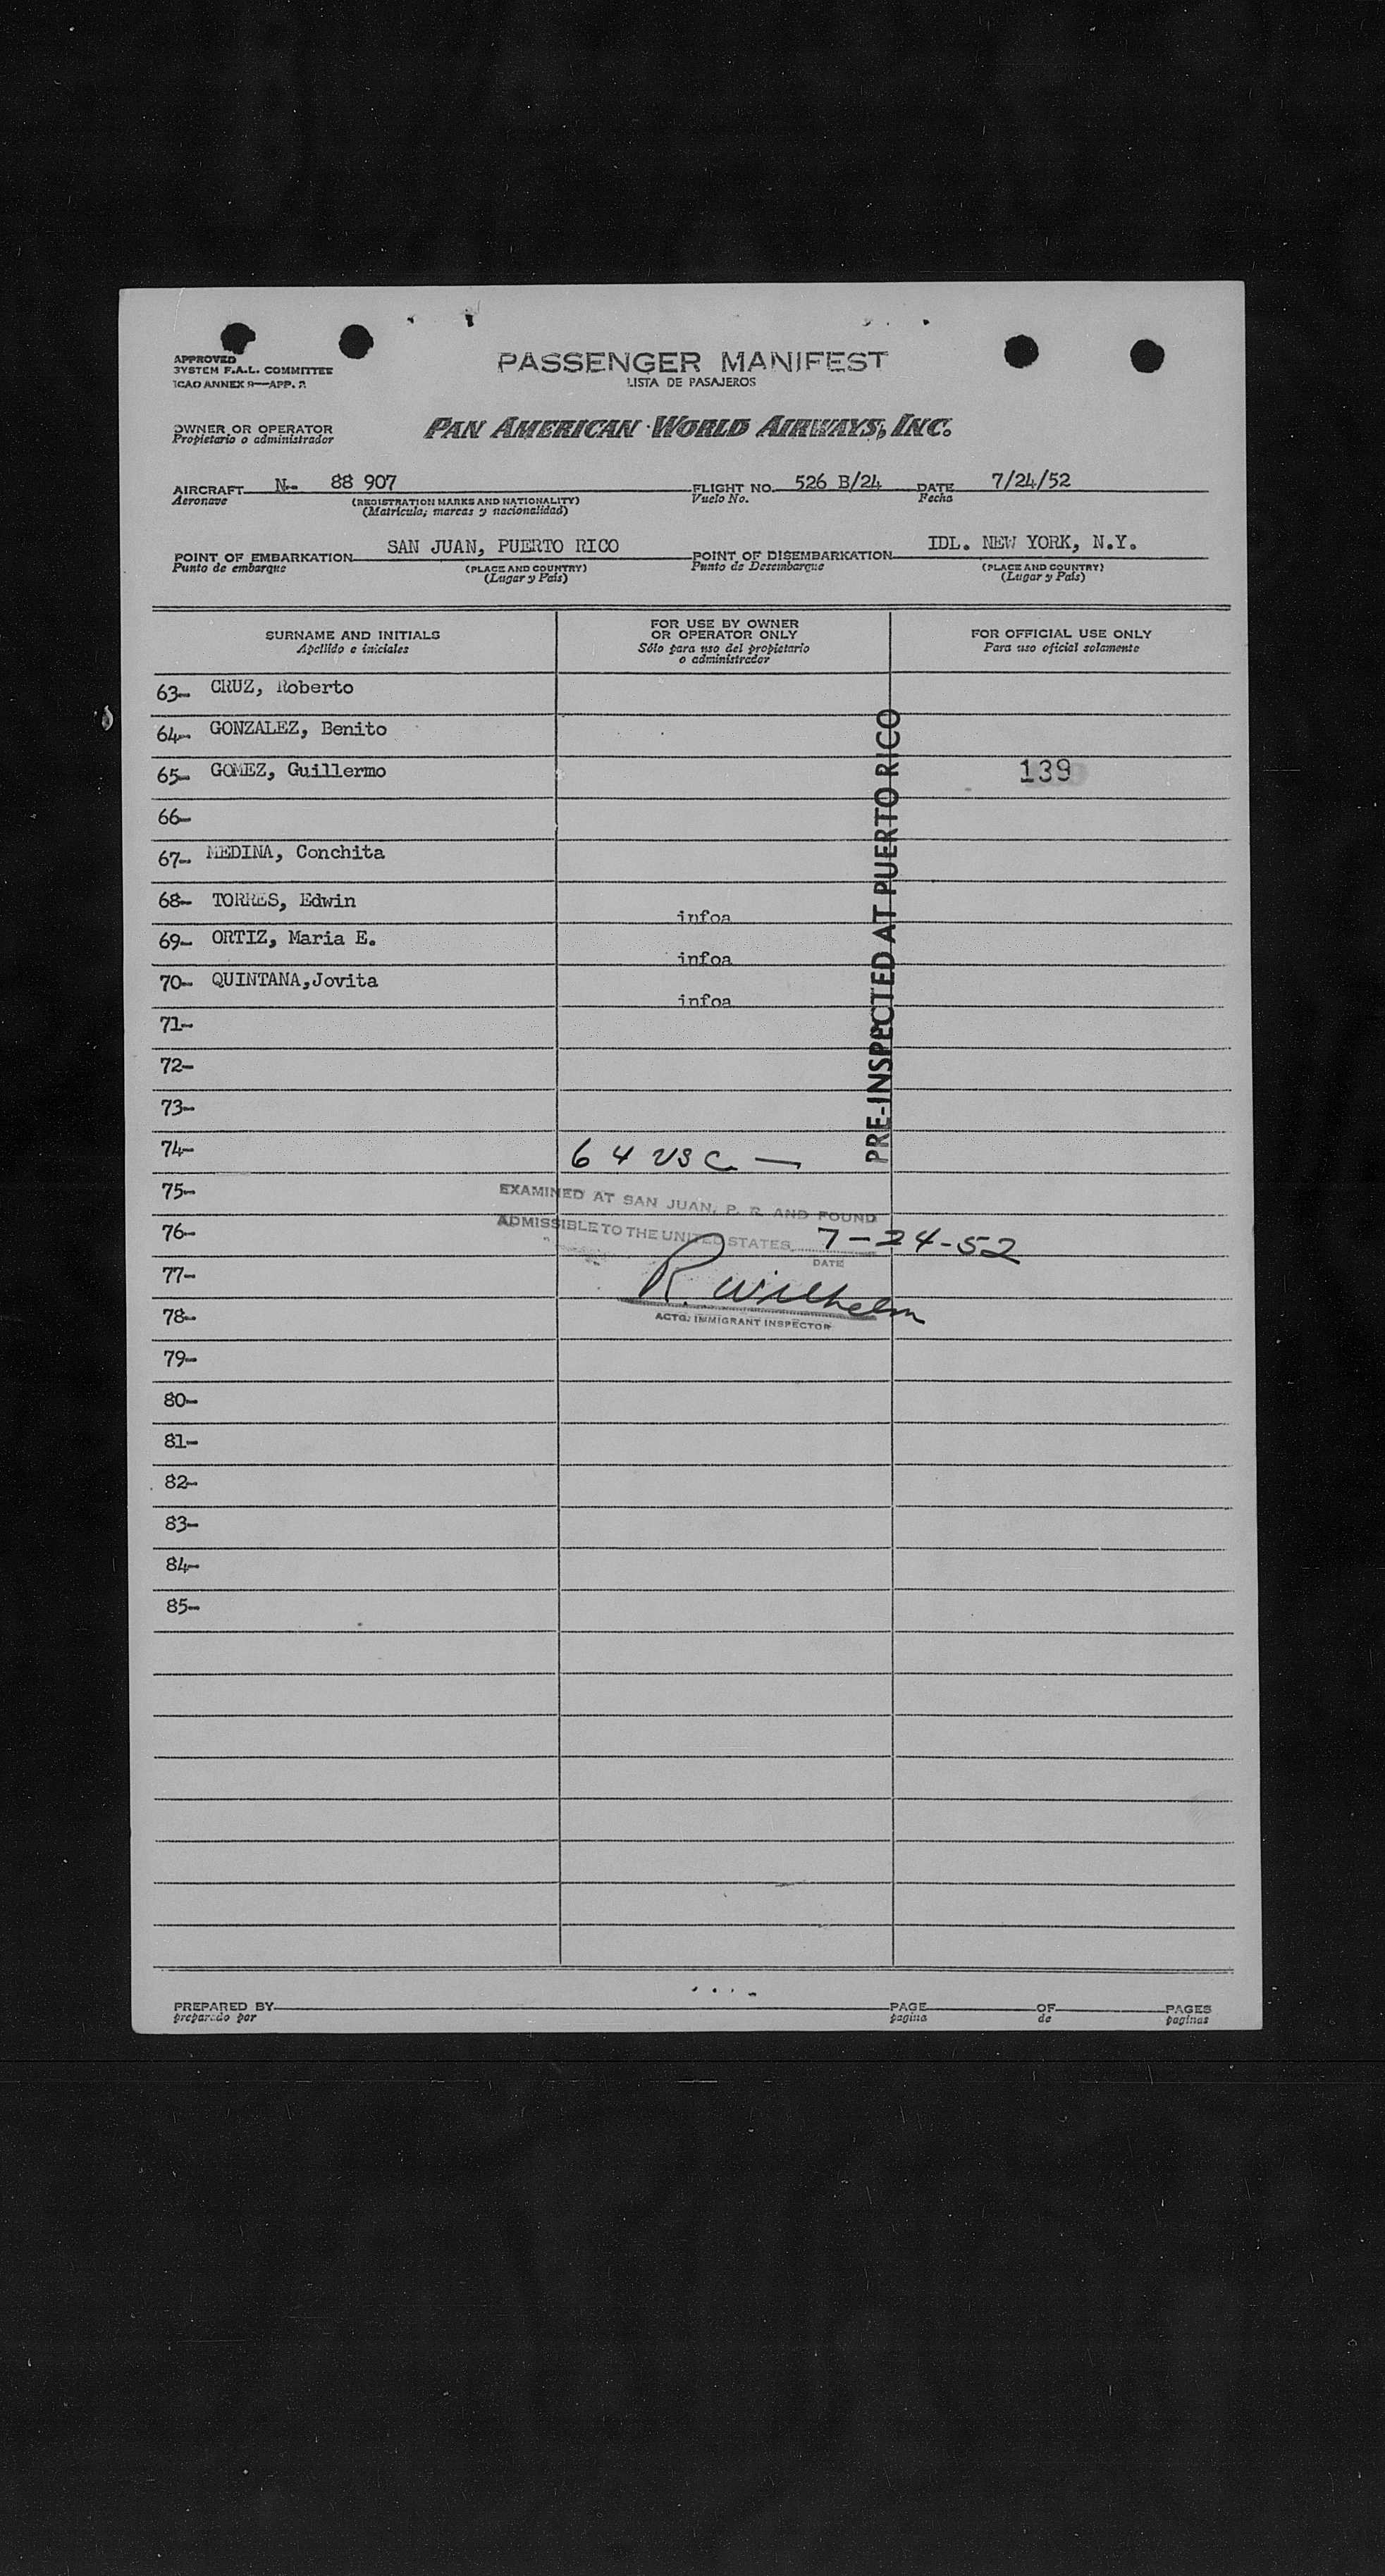 APPROVED
SYSTEM F.A.L. COMMITTEE
ICAO ANNEX 9—APP. 2
PASSENGER MANIFEST
LISTA DE PASAJEROS
OWNER OR OPERATOR
Propietario o administrador
PAN AMERICAN WORLD AIRWAYS, INC.
AIRCRAFT N- 88 907 FLIGHT NO. 526 B/24 DATE 7/24/52
Aeronave (REGISTRATION MARKS AND NATIONALITY) Vuelo No. Fecha
(Matricula; marcas y nacionalidad)
POINT OF EMBARKATION SAN JUAN, PUERTO RICO POINT OF DISEMBARKATION IDL. NEW YORK, N.Y.
Punto de embarque (PLACE AND COUNTRY) Punto de Desembarque (PLACE AND COUNTRY)
(Lugar y País) (Lugar y País)
SURNAME AND INITIALS
Apellido e iniciales
FOR USE BY OWNER
OR OPERATOR ONLY
Sólo para uso del propietario
o administrador
FOR OFFICIAL USE ONLY
Para uso oficial solamente
63- CRUZ, Roberto
64- GONZALEZ, Benito
65- GOMEZ, Guillermo 139
66-
67- MEDINA, Conchita
68- TORRES, Edwin infoa
69- ORTIZ, Maria E. infoa
70- QUINTANA,Jovita infoa
PRE-INSPECTED AT PUERTO RICO
71-
72-
73-
74- 64 USC —
75-
EXAMINED AT SAN JUAN, P. R. AND FOUND
76-
ADMISSIBLE TO THE UNITED STATES 7-24-52
DATE
77-
R. Wilhelm
78-
ACTG. IMMIGRANT INSPECTOR
79-
80-
81-
82-
83-
84-
85-
PREPARED BY PAGE OF PAGES
preparado por pagina de paginas